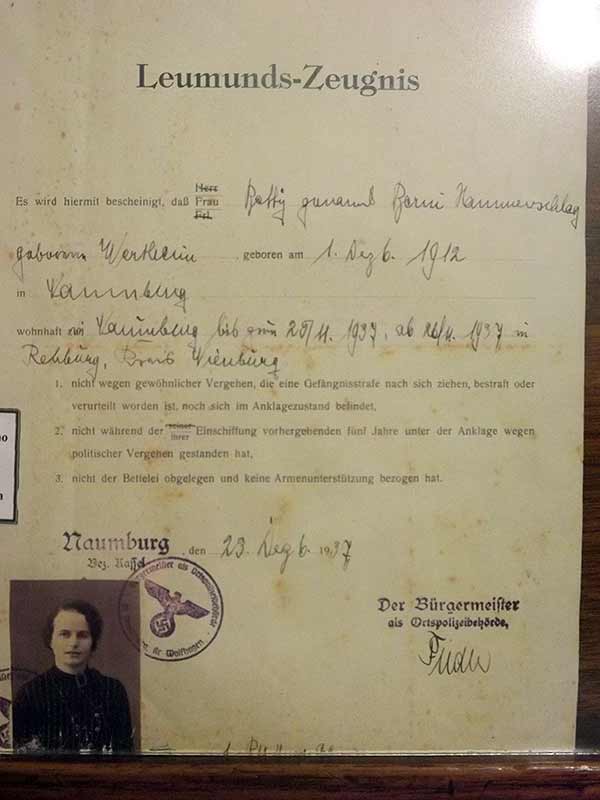 Leumunds-Zeugnis
Herr
Es wird hiermit bescheinigt, daß Frau Betty genannt Berni Hammerschlag
Frl.
geborene Wertheim, geboren am 1. Dezb. 1912
in Naumburg
wohnhaft in Naumburg bis zum 25/11. 1937, ab 26/11. 1937 in
Rehburg, Kreis Nienburg
1. nicht wegen gewöhnlicher Vergehen, die eine Gefängnisstrafe nach sich ziehen, bestraft oder
verurteilt worden ist, noch sich im Anklagezustand befindet,
2. nicht während der seiner Einschiffung vorhergehenden fünf Jahre unter der Anklage wegen
ihrer
politischer Vergehen gestanden hat,
3. nicht der Bettelei obgelegen und keine Armenunterstützung bezogen hat.
Naumburg, den 23. Dezb. 1937
Bez. Kassel
Bürgermeister als Ortspolizeibehörde
Kr. Wolfhagen
Der Bürgermeister
als Ortspolizeibehörde,